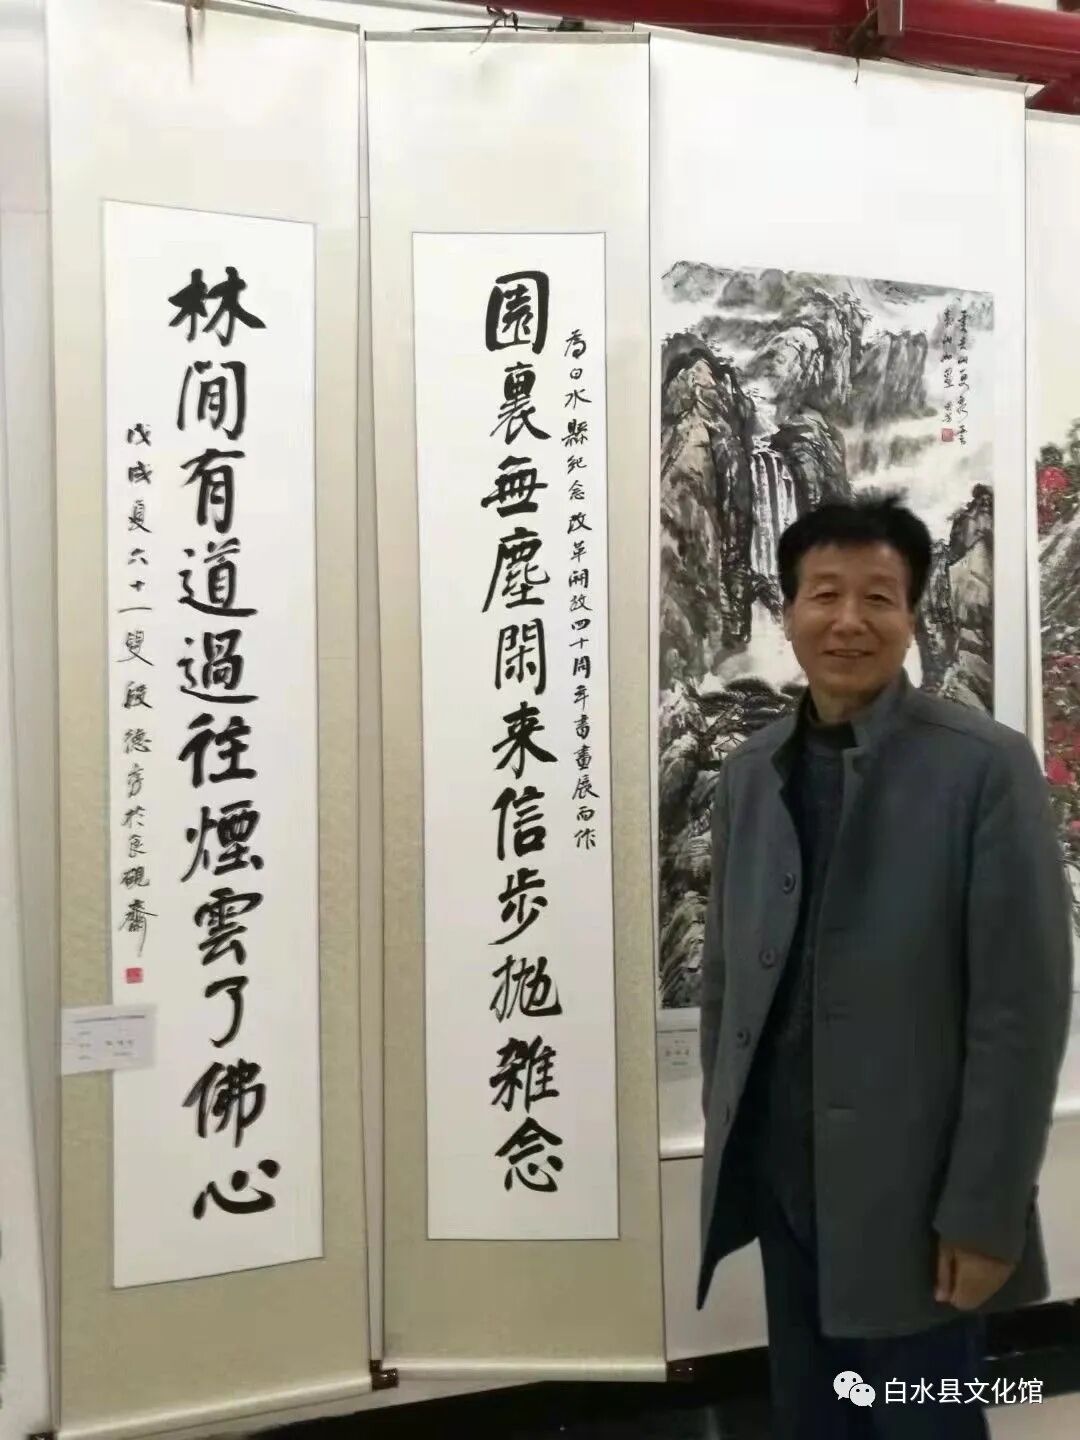 為白水縣紀念改革開放四十周年書畫展而作
園裏無塵閑来信步拋雜念
林間有道過往煙雲了佛心
戊戌夏六十一叟段德方於良硯齋
白水县文化馆